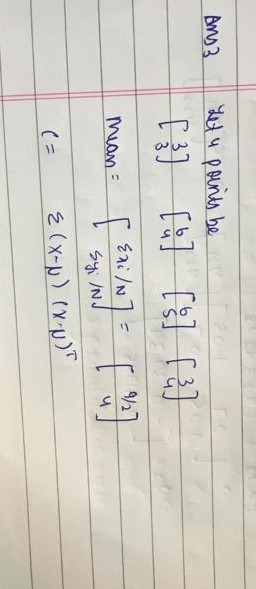 Ans3 Let 4 points be
[3 3] [6 4] [6 5] [3 4]
mean = [Σxi/N Σyi/N] = [9/2 4]
C = Σ(X-μ) (X-μ)ᵀ